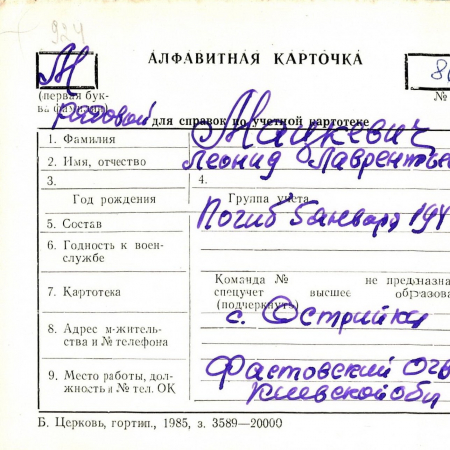 924
АЛФАВИТНАЯ КАРТОЧКА
М
(первая бук-
ва фамилии)
№
Рядовой
для справок по учетной картотеке
1. Фамилия Мацкевич
2. Имя, отчество Леонид Лаврентьев
3. 4.
Год рождения Группа учета
5. Состав Погиб 5 января 194
6. Годность к воен-
службе
Команда № не предназна
7. Картотека спецучет высшее образова
(подчеркнуть)
с. Острийки
8. Адрес м-житель-
ства и № телефона
Фастовский
9. Место работы, дол-
жность и № тел. ОК Киевской обл
Б. Церковь, гортип., 1985, з. 3589—20000